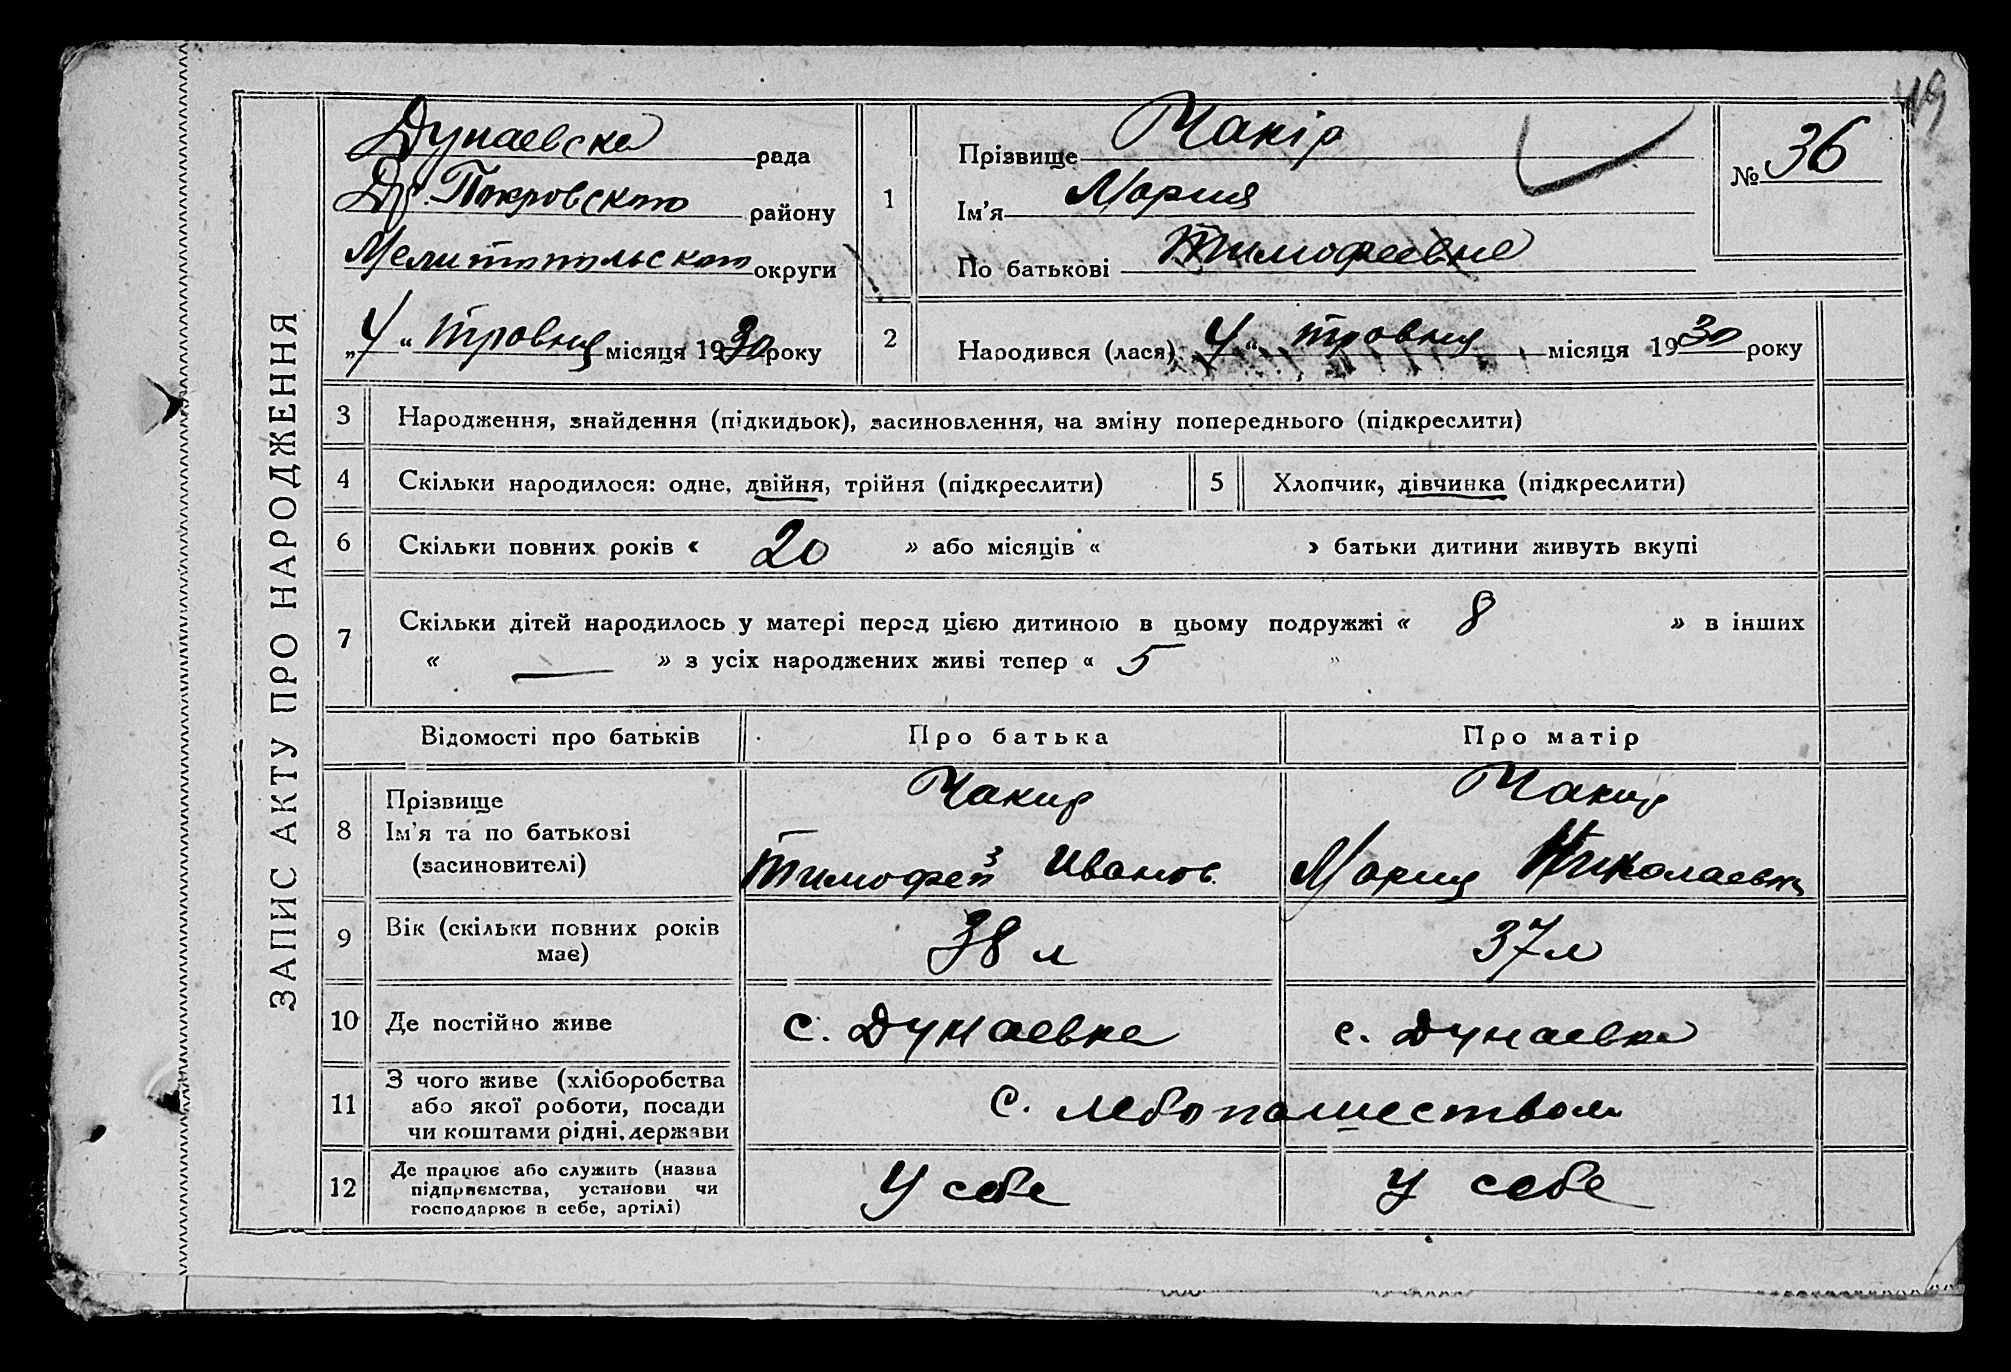 49
ЗАПИС АКТУ ПРО НАРОДЖЕННЯ
Дунаевска рада
Др. Покровского району
Мелитопольского округи
„4“ травня місяця 1930 року
1
Прізвище Чакір
Ім'я Мария
По батькові Тимофеевна
№ 36
2
Народився (лася) „4“ травня місяця 1930 року
3 Народження, знайдення (підкидьок), засиновлення, на зміну попереднього (підкреслити)
4 Скільки народилося: одне, двійня, трійня (підкреслити)
5 Хлопчик, дівчинка (підкреслити)
6 Скільки повних років « 20 » або місяців « » батьки дитини живуть вкупі
7 Скільки дітей народилось у матері перед цією дитиною в цьому подружжі « 8 » в інших
« — » з усіх народжених живі тепер « 5 »
Відомості про батьків Про батька Про матір
8 Прізвище
Ім'я та по батькові
(засиновителі)
Чакир
Тимофей Иванов.
Чакир
Мария Николаевна
9 Вік (скільки повних років
має)
38 л
37 л
10 Де постійно живе
с. Дунаевка
с. Дунаевка
11 З чого живе (хліборобства
або якої роботи, посади
чи коштами рідні, держави
с. хлебопашеством
12 Де працює або служить (назва
підприємства, установи чи
господарює в себе, артілі)
У себе
У себе